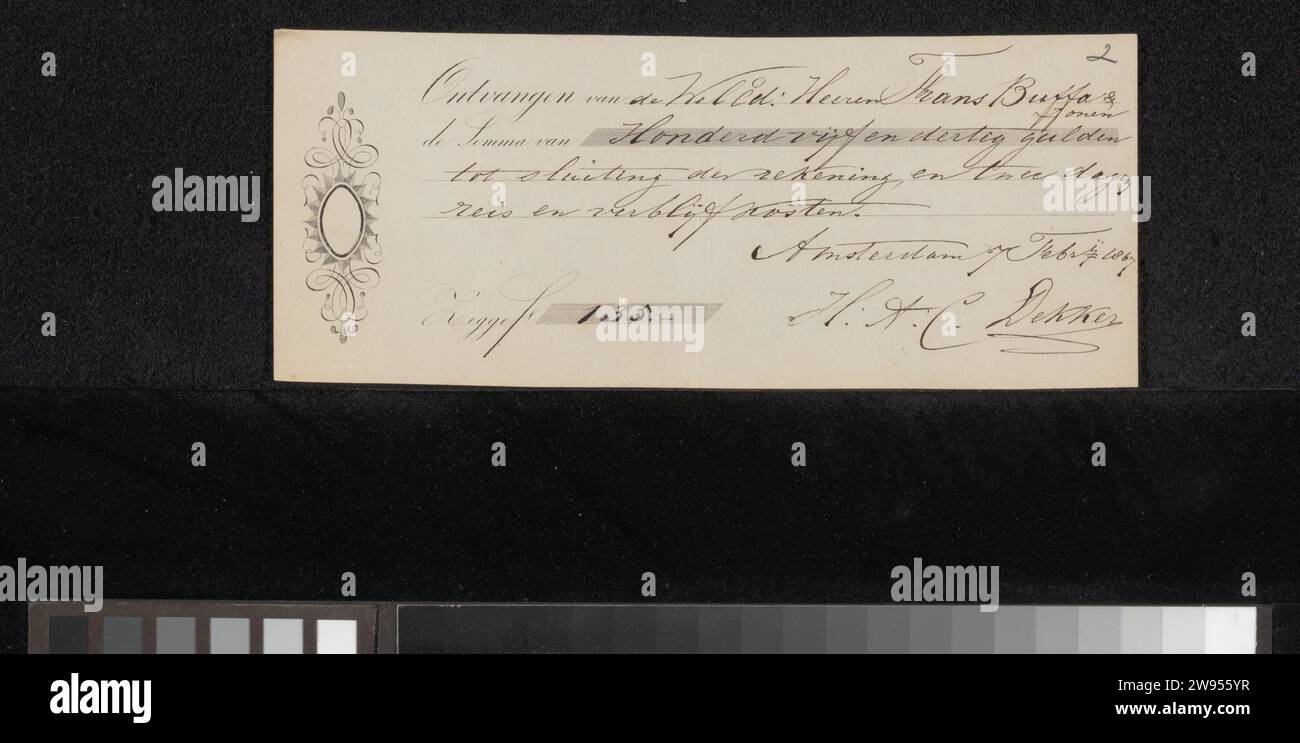 2
Ontvangen van de WelEd: Heeren Frans Buffa &
Zonen
de Somma van Honderd vijf en dertig gulden
tot sluiting der rekening, en twee dagen
reis en verblijf kosten.
Amsterdam 7 Febrij 1867
Zegge f 135.— H: A: C. Dekker
alamy
Image ID: 2W955YR
www.alamy.com